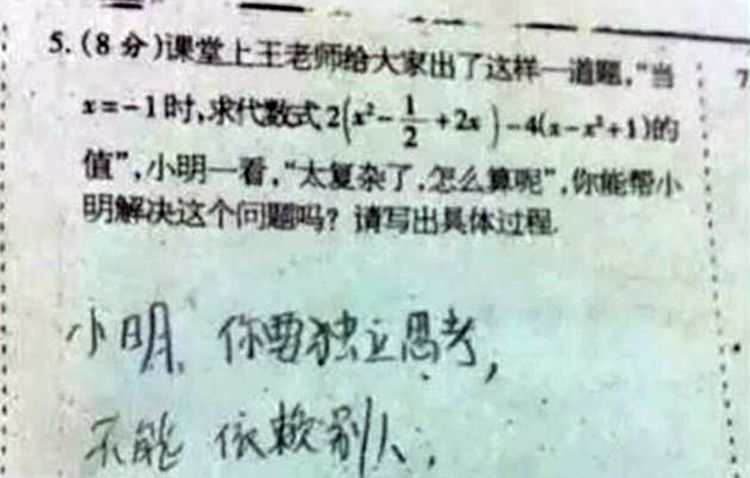 5.(8分)课堂上王老师给大家出了这样一道题,“当
x=-1时,求代数式2(x²-1/2+2x)-4(x-x²+1)的
值”,小明一看,“太复杂了,怎么算呢”,你能帮小
明解决这个问题吗?请写出具体过程.
7
小明,你要独立思考,
不能依赖别人,